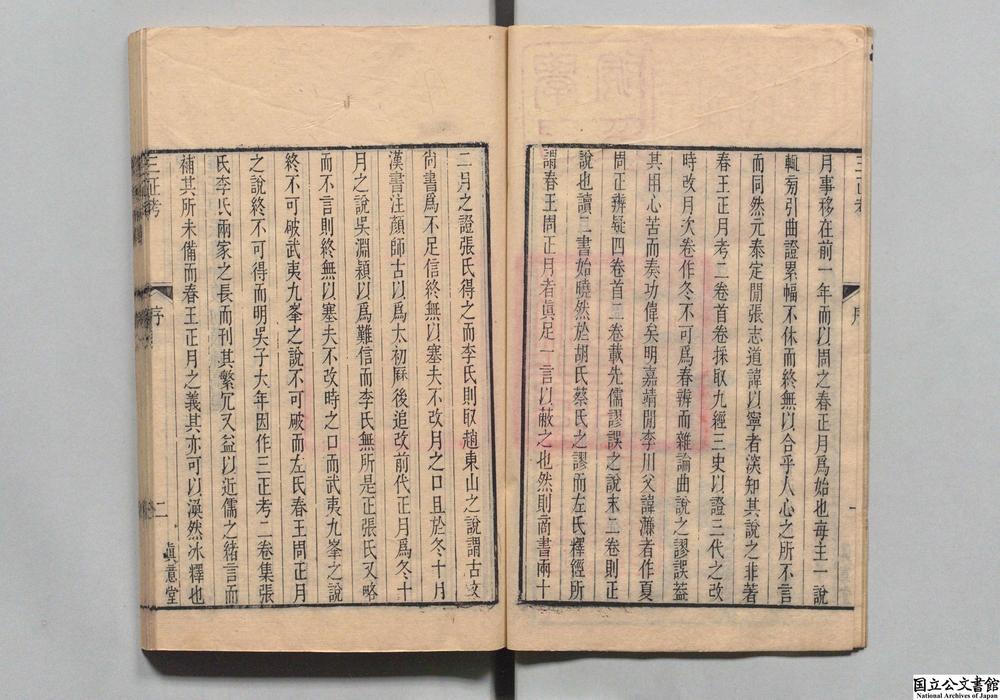 三正考
序
一
月事移在前一年而以周之春正月爲始也每主一說
輒旁引曲證累幅不休而終無以合乎人心之所不言
而同然元泰定閒張志道諱以寧者深知其說之非著
春王正月考二卷首卷採取九經三史以證三代之改
時改月次卷作冬不可爲春辨而雜論曲說之謬誤葢
其用心苦而奏功偉矣明嘉靖閒李川父諱濂者作夏
周正辨疑四卷首二卷載先儒謬誤之說末二卷則正
說也讀二書始曉然於胡氏蔡氏之謬而左氏釋經所
謂春王周正月者眞足一言以蔽之也然則商書兩十
二月之證張氏得之而李氏則取趙東山之說謂古文
尚書爲不足信終無以塞夫不改月之口且於冬十月
漢書注顏師古以爲太初厤後追改前代正月爲冬十
月之說吳淵穎以爲難信而李氏無所是正張氏又略
而不言則終無以塞夫不改時之口而武夷九峯之說
終不可破武夷九峯之說不可破而左氏春王周正月
之說終不可得而明吳子大年因作三正考二卷集張
氏李氏兩家之長而刊其繁冗又益以近儒之緒言而
補其所未備而春王正月之義其亦可以渙然冰釋也
三正考
序
二
眞意堂
国立公文書館
National Archives of Japan